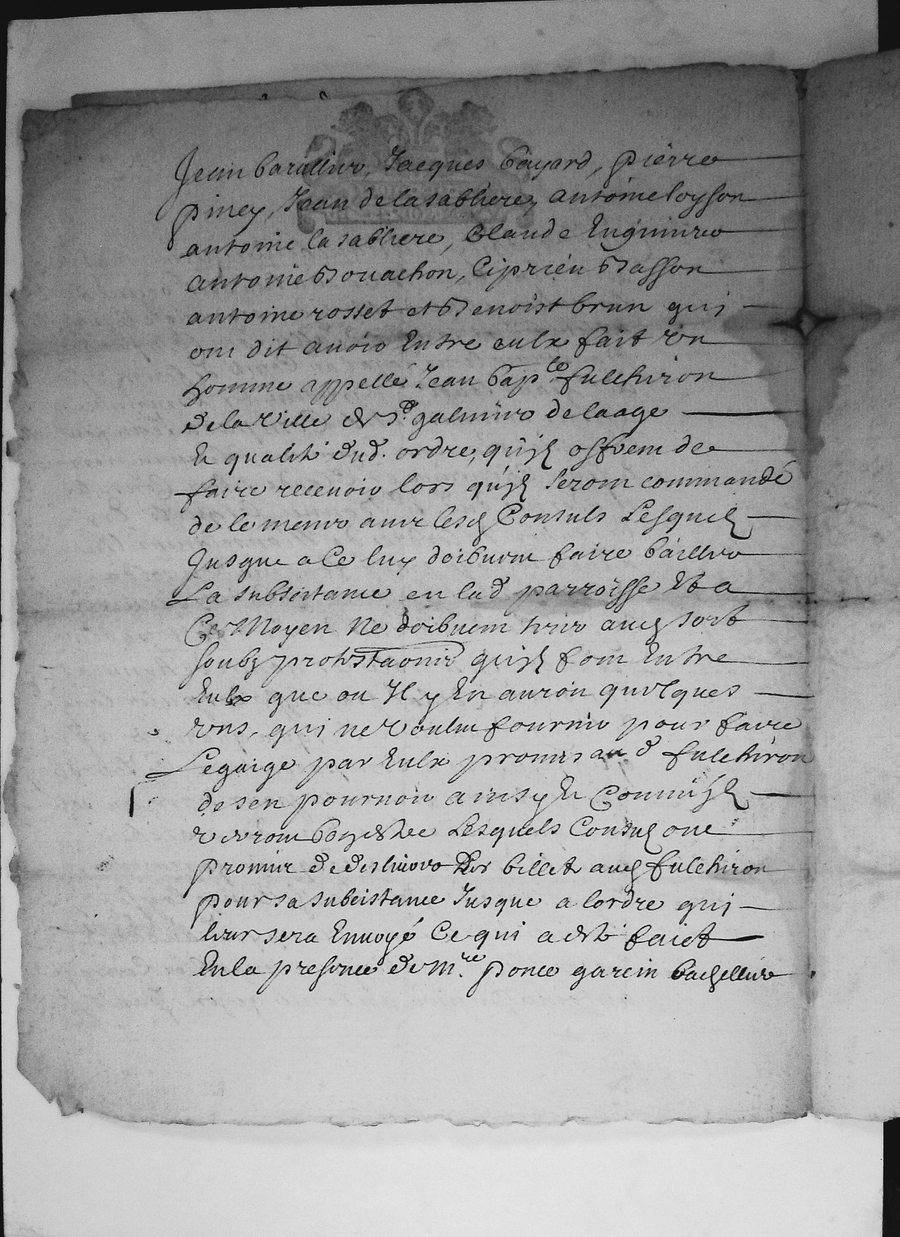 Jean barallier, Jacques bayard, pierre
piney, Jean de lasabliere, antoine loyson
antoine lasabliere, Claude Enguinire
antoine bouachon, Ciprien basson
antoine rosset et benoist brun qui
ont dit avoir Entre eulx fait un
homme appellé Jean bap.te fulchiron
de la ville de St galmier de laage
En qualité dud. ordre, qu'ilz offrent de
faire recevoir lors qu'ilz seront commandé
de le mener avec lesd Consuls Lesquelz
Jusque a ce luy doibvent faire bailler
La subsistance en lad parroisse Et a
Ce Moyen Ne doibvent tirer aud sort
soubz protestaons qu'ilz font Entre
Eulx que ou Il y En auroit quelques
uns, qui ne voulut fournir pour faire
Le gaige par Eulx promis aud fulchiron
de sen pourvoir ainsy Et Comm'ilz
verront Lesquels Consulz ont
promis de deslivrer billet aud fulchiron
pour sa subcistance Jusque a lordre qui
leur sera Envoyé Ce qui a esté faict
En la presence de M.re ponce garcin bachellier